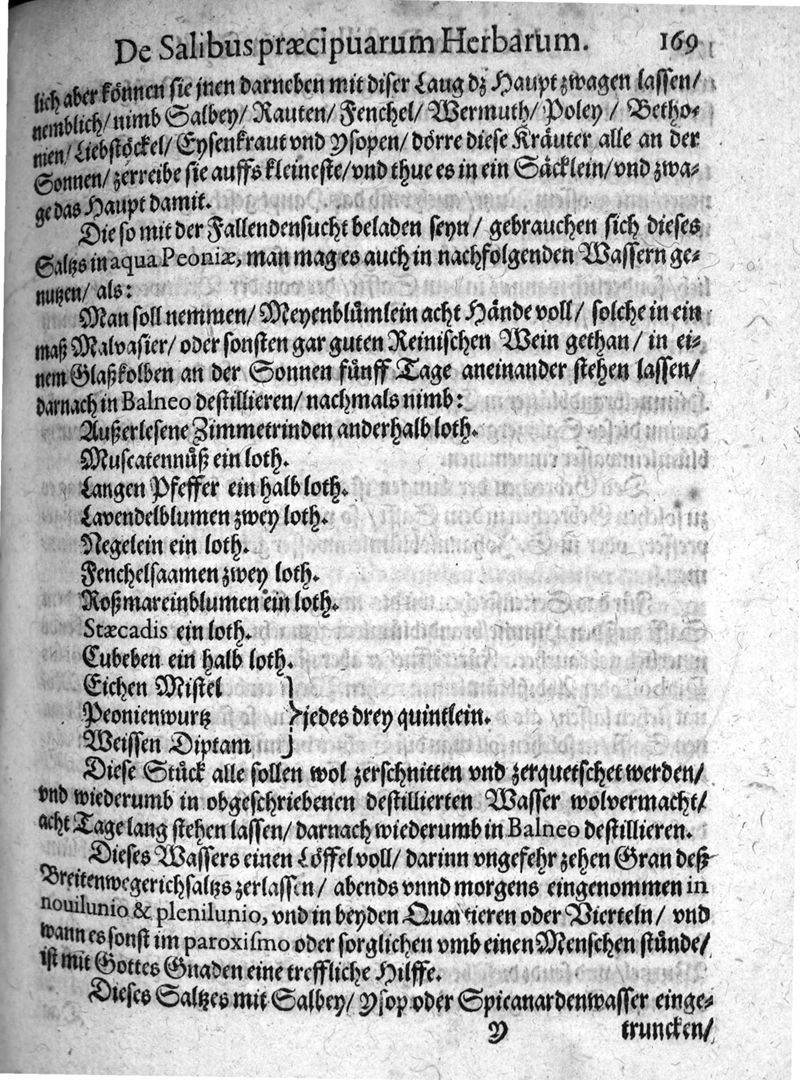 De Salibus præcipuarum Herbarum. 169
lich aber können sie jnen darneben mit diser Laug dz Haupt zwagen lassen/
nemblich/ nimb Salbey/ Rauten/ Fenchel/ Wermuth/ Poley/ Betho-
nien/ Liebstöckel/ Eysenkraut vnd Ysopen/ dörre diese Kräuter alle an der
Sonnen/ zerreibe sie auffs kleineste/ vnd thue es in ein Säcklein/ vnd zwa-
ge das Haupt damit.
Die so mit der Fallendensucht beladen seyn/ gebrauchen sich dieses
Saltzs in aqua Peoniæ, man mag es auch in nachfolgenden Wassern ge-
nutzen/ als:
Man soll nemmen/ Meyenblümlein acht Hände voll/ solche in ein
maß Malvasier/ oder sonsten gar guten Reinischen Wein gethan/ in ei-
nem Glaßkolben an der Sonnen fünff Tage aneinander stehen lassen/
darnach in Balneo destillieren/ nachmals nimb:
Außerlesene Zimmetrinden anderhalb loth.
Muscatennüß ein loth.
Langen Pfeffer ein halb loth.
Lavendelblumen zwey loth.
Negelein ein loth.
Fenchelsaamen zwey loth.
Roßmareinblumen ein loth.
Stæcadis ein loth.
Cubeben ein halb loth.
Eichen Mistel
Peonienwurtz } jedes drey quintlein.
Weissen Diptam
Diese Stück alle sollen wol zerschnitten vnd zerquetschet werden/
vnd wiederumb in obgeschriebenen destillierten Wasser wolvermacht/
acht Tage lang stehen lassen/ darnach wiederumb in Balneo destillieren.
Dieses Wassers einen Löffel voll/ darinn vngefehr zehen Gran deß
Breitenwegerichsaltzs zerlassen/ abends vnnd morgens eingenommen in
novilunio & plenilunio, vnd in beyden Quartieren oder Vierteln/ vnd
wann es sonst im paroxismo oder sorglichen vmb einen Menschen stünde/
ist mit Gottes Gnaden eine treffliche Hilffe.
Dieses Saltzes mit Salbey/ Ysop oder Spicanardenwasser einge-
Y truncken/